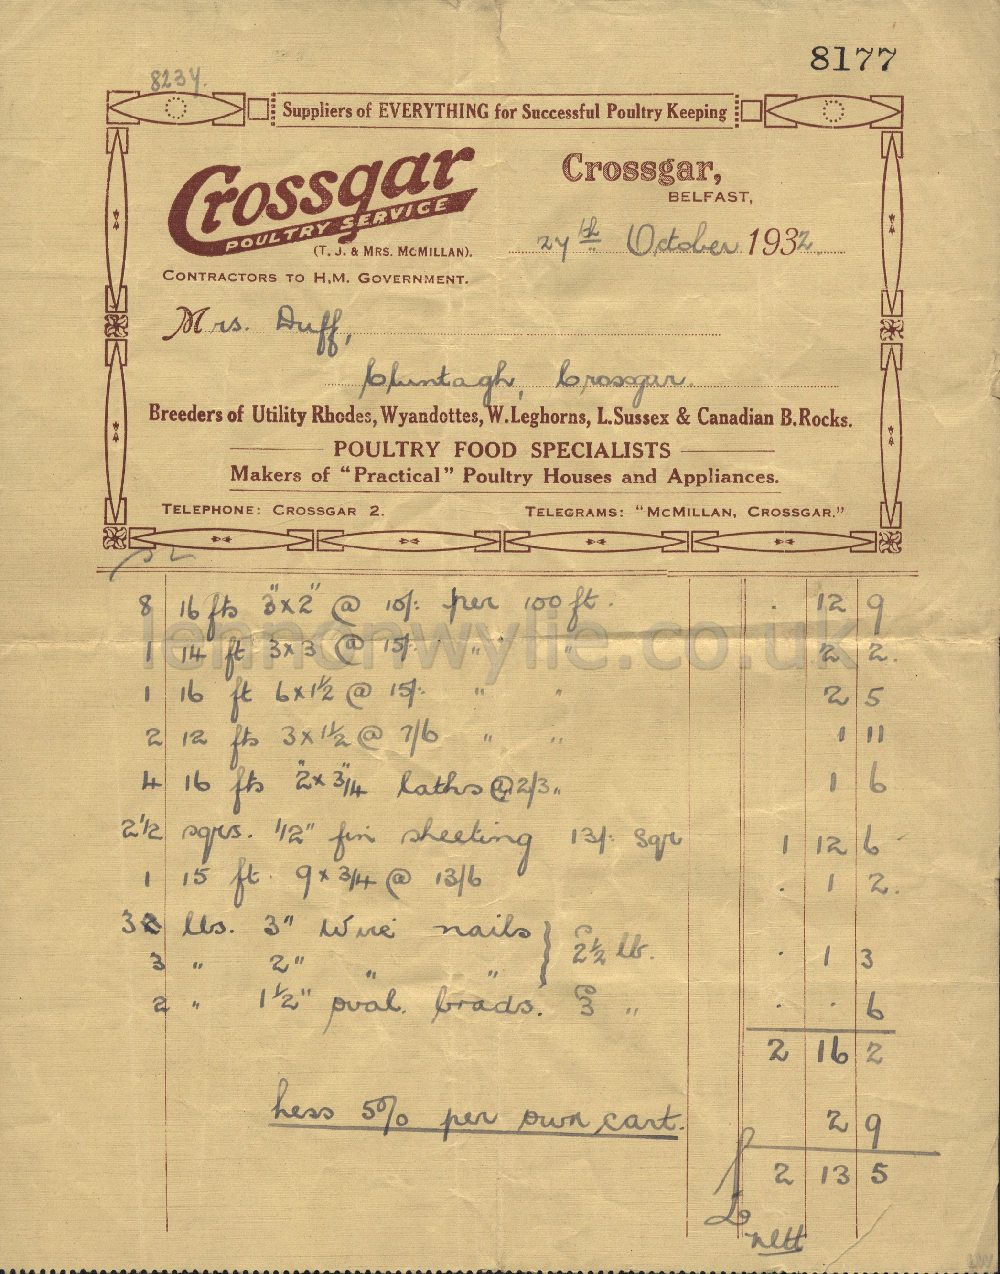 8177
8234.
Suppliers of EVERYTHING for Successful Poultry Keeping
Crossgar
POULTRY SERVICE
(T. J. & MRS. MCMILLAN).
CONTRACTORS TO H,M. GOVERNMENT.
Crossgar,
BELFAST,
24th October 1932
Mrs. Duff,
Cluntagh, Crossgar.
Breeders of Utility Rhodes, Wyandottes, W. Leghorns, L. Sussex & Canadian B. Rocks.
POULTRY FOOD SPECIALISTS
Makers of "Practical" Poultry Houses and Appliances.
TELEPHONE: CROSSGAR 2. TELEGRAMS: "MCMILLAN, CROSSGAR."
8 16 fts 3" x 2" @ 10/- per 100 ft. . 12 9
lennonwylie.co.uk
1 14 ft 3 x 3 @ 15/- " " 2 2.
1 16 ft 6 x 1½ @ 15/- " " 2 5
2 12 fts 3 x 1½ @ 7/6 " " 1 11
4 16 fts 2" x ¾" laths @ 2/3 " 1 6
2½ sqrs. ½" fin sheeting 13/- sqr 1 12 6
1 15 ft. 9 x ¾ @ 13/6 . 1 2.
3 lbs. 3" wire nails
3 " 2" " " 2½ lb. . 1 3
2 " 1½" oval brads. 3 " . . 6
2 16 2
Less 5% per own cart. 2 9
£ 2 13 5
nett
LW